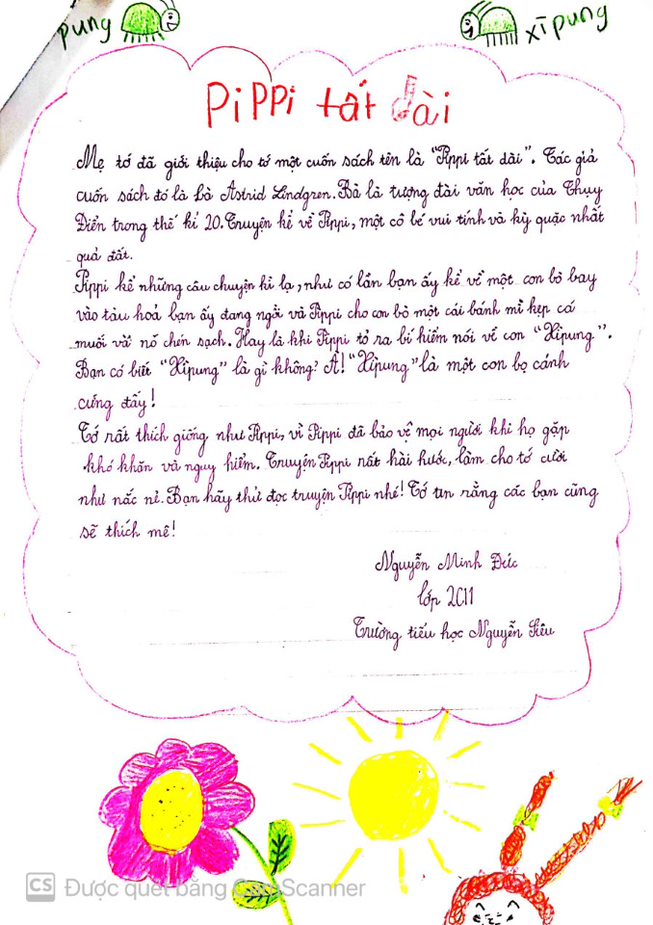 pung
xĩ pung
PiPPi tất dài
Mẹ tớ đã giới thiệu cho tớ một cuốn sách tên là "Pippi tất dài". Tác giả
cuốn sách đó là bà Astrid Lindgren. Bà là tượng đài văn học của Thụy
Điển trong thế kỉ 20. Truyện kể về Pippi, một cô bé vui tính và kỳ quặc nhất
quả đất.
Pippi kể những câu chuyện kì lạ, như có lần bạn ấy kể về một con bò bay
vào tàu hoả bạn ấy đang ngồi và Pippi cho con bò một cái bánh mì kẹp cá
muối và nó chén sạch. Hay là khi Pippi tỏ ra bí hiểm nói về con "Xìpung".
Bạn có biết "Xìpung" là gì không? À! "Xìpung" là một con bọ cánh
cứng đấy!
Tớ rất thích giống như Pippi, vì Pippi đã bảo vệ mọi người khi họ gặp
khó khăn và nguy hiểm. Truyện Pippi rất hài hước, làm cho tớ cười
như nấc nẻ. Bạn hãy thử đọc truyện Pippi nhé! Tớ tin rằng các bạn cũng
sẽ thích mê!
Nguyễn Minh Đức
lớp 2C11
Trường tiểu học Nguyễn Siêu
CS Được quét bằng CamScanner